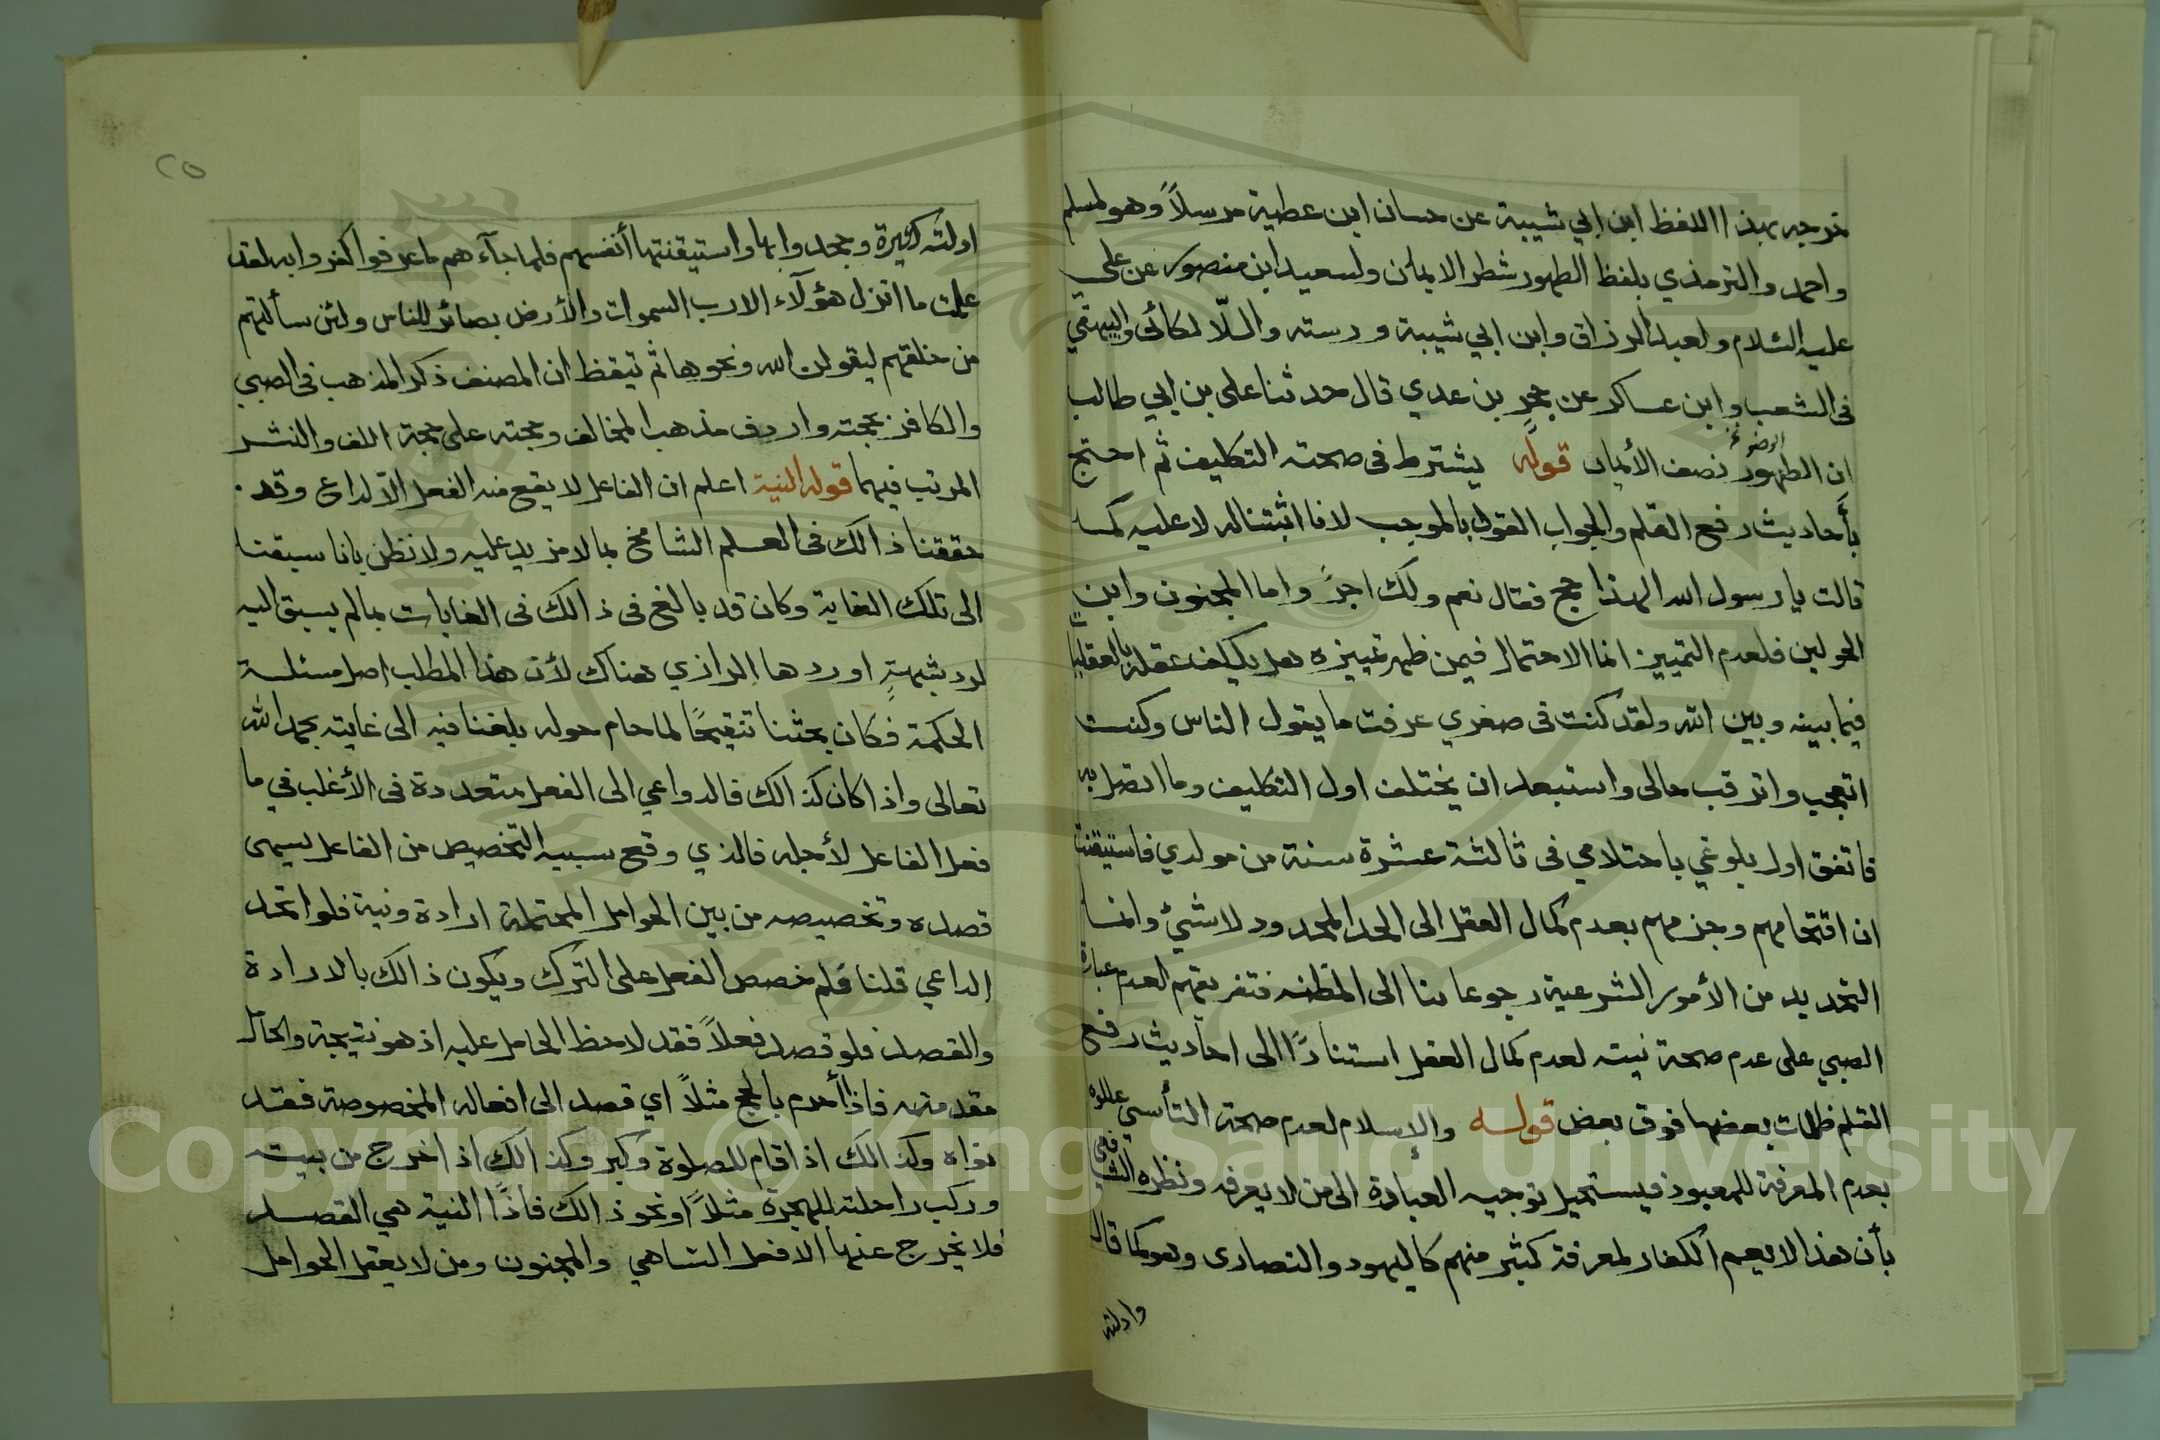 خرجه بهذا اللفظ ابن ابي شيبة عن حسان ابن عطية مرسلاً وهو لمسلم
واحمد والترمذي بلفظ الطهور شطر الايمان ولسعيد ابن منصور عن علي
عليه السلام ولعبد الرزاق وابن ابي شيبة ورسته واللّالكائي والبيهقي
في الشعب وابن عساكر عن حجر بن عدي قال حدثنا علي بن ابي طالب
الوضوء
ان الطهور نصف الأيمان قوله يشترط في صحته التكليف ثم احتج
بأحاديث رفع القلم والجواب القول بالموجب لانا اثبتناله لا عليه كما
قالت يا رسول الله الهذا حج فقال نعم ولك اجرً واما المجنون وابن
الحولين فلعدم التمييز انما الاحتمال فيمن ظهر تمييزه هل يكلف عقله بالعقليات
فيما بينه وبين الله ولقد كنت في صغري عرفت ما يقول الناس وكنت
اتعجب واترقب حالى واستبعد ان يختلف اول التكليف وما اتصل به
فاتفق اول بلوغي باحتلامي في ثالثة عشرة سنة من مولدي فاستيقنت
ان اقتحامهم وجزمهم بعدم كمال العقل الى الحد المحدود لا شيئ وانما
التحديد من الأمور الشرعية رجوعا بنا الى المظنه فتفريقهم لعدم عبارة
الصبي على عدم صحة نيته لعدم كمال العقل استنادًا الى احاديث رفع
القلم ظلمات بعضها فوق بعض قوله والإسلام لعدم صحة التأسي علله
بعدم المعرفة للمعبود فيستحيل توجيه العبادة الى من لا يعرفه ونظره الشافعي
بأن هذا لا يعم الكفار لمعرفة كثير منهم كاليهود والنصارى وهو كما قال
وادلته
٢٥
ادلته كثيرة وجحدوا بها واستيقنتها أنفسهم فلما جآءهم ما عرفوا كفروا به لقد
علمت ما انزل هؤلآء الا رب السموات والأرض بصائر للناس ولئن سألتهم
من خلقهم ليقولن الله ونحوها ثم تيقظ ان المصنف ذكر المذهب في الصبي
والكافر بحجته واردف مذهب المخالف وحجته على جهة اللف والنشر
المرتب فيهما قوله النية اعلم ان الفاعل لا يقع منه الفعل الّا لداع وقد
حققنا ذالك في العلم الشامخ بما لا مزيد عليه ولا نظن بانا سبقنا
الى تلك الغاية وكان قد بالغ في ذالك في الغايات بما لم يسبق اليه
لرد شبهةٍ اوردها الرازي هناك لأن هذا المطلب اصل مسئلة
الحكمة فكان بحثنا تنقيحًا لما حام حوله بلغنا فيه الى غايته بحمد الله
تعالى واذا كان كذالك فالدواعي الى الفعل متعددة في الأغلب في ما
فعل الفاعل لأجله فالذي وقع بسببه التخصيص من الفاعل يسمى
قصده وتخصيصه من بين الحوامل المحتملة ارادة ونية فلو اتحد
الداعي قلنا فلم خصص الفعل على الترك ويكون ذالك بالارادة
والقصد فلو قصد فعلاً فقد لاحظ الحامل عليه اذ هو نتيجة والحامل
مقدمته فاذا أحرم بالحج مثلاً اي قصد الى افعاله المخصوصة فقد
نواه وكذالك اذا قام للصلوة وكبر وكذالك اذ اخرج من بيته
وركب راحلته للهجرة مثلاً او نحو ذالك فأذًا النية هي القصد
فلا يخرج عنها الا فعل الساهي والمجنون ومن لا يعقل الحوامل
Copyright © King Saud University